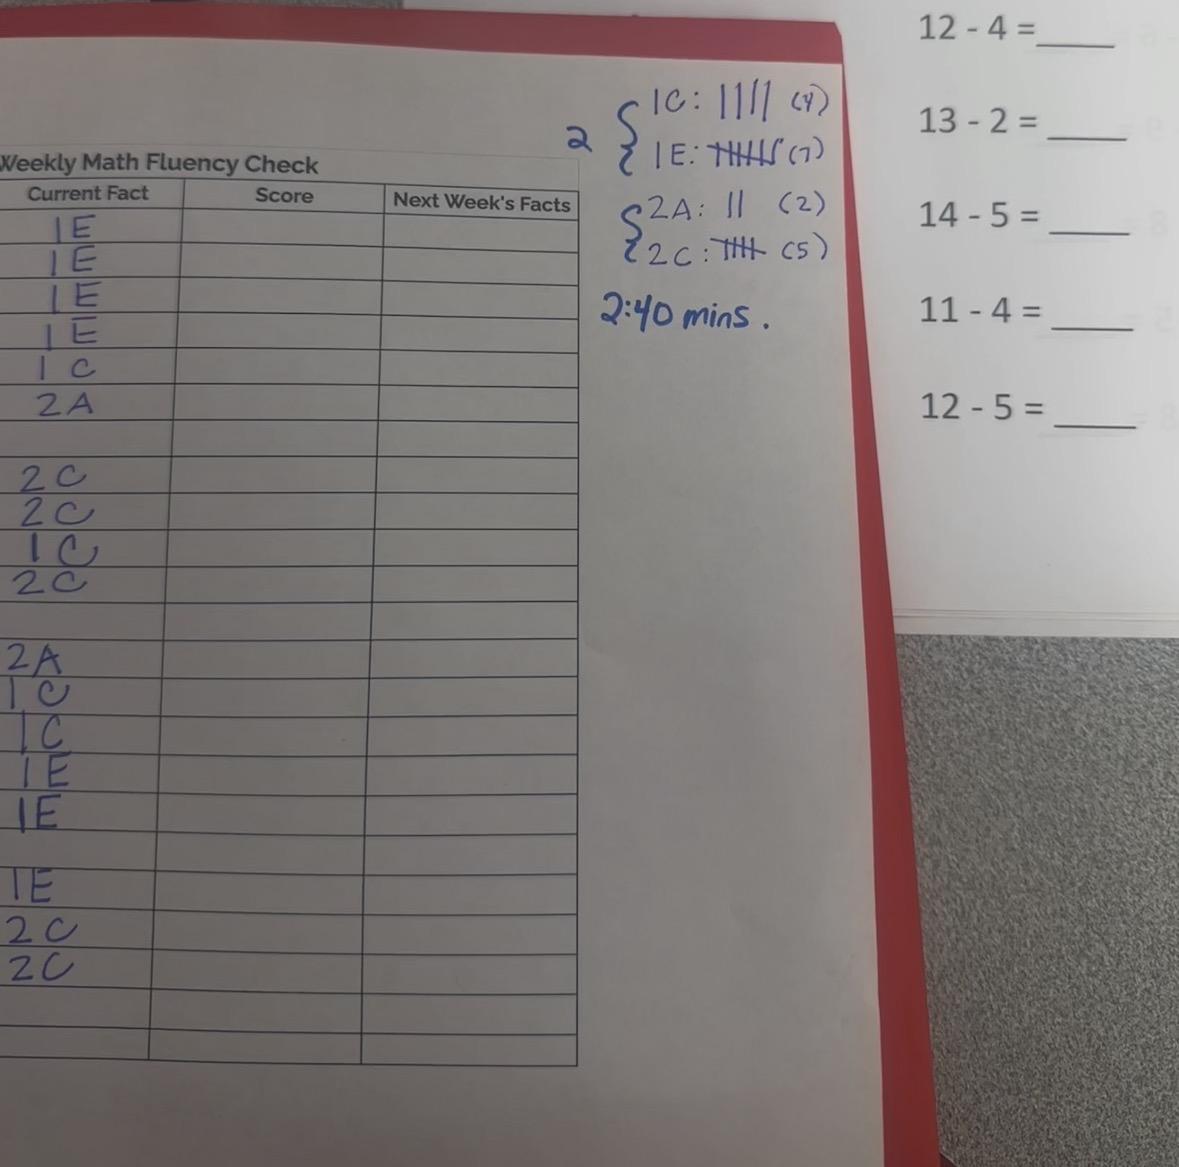 Weekly Math Fluency Check
Current Fact Score Next Week's Facts
1E
1E
1E
1E
1C
2A
2C
2C
1C
2C
2A
1C
1C
1E
1E
1E
2C
2C
2
1C: |||| (4)
1E: (7)
2A: || (2)
2C: (5)
2:40 mins.
12 - 4 = ____
13 - 2 = ____
14 - 5 = ____
11 - 4 = ____
12 - 5 = ____